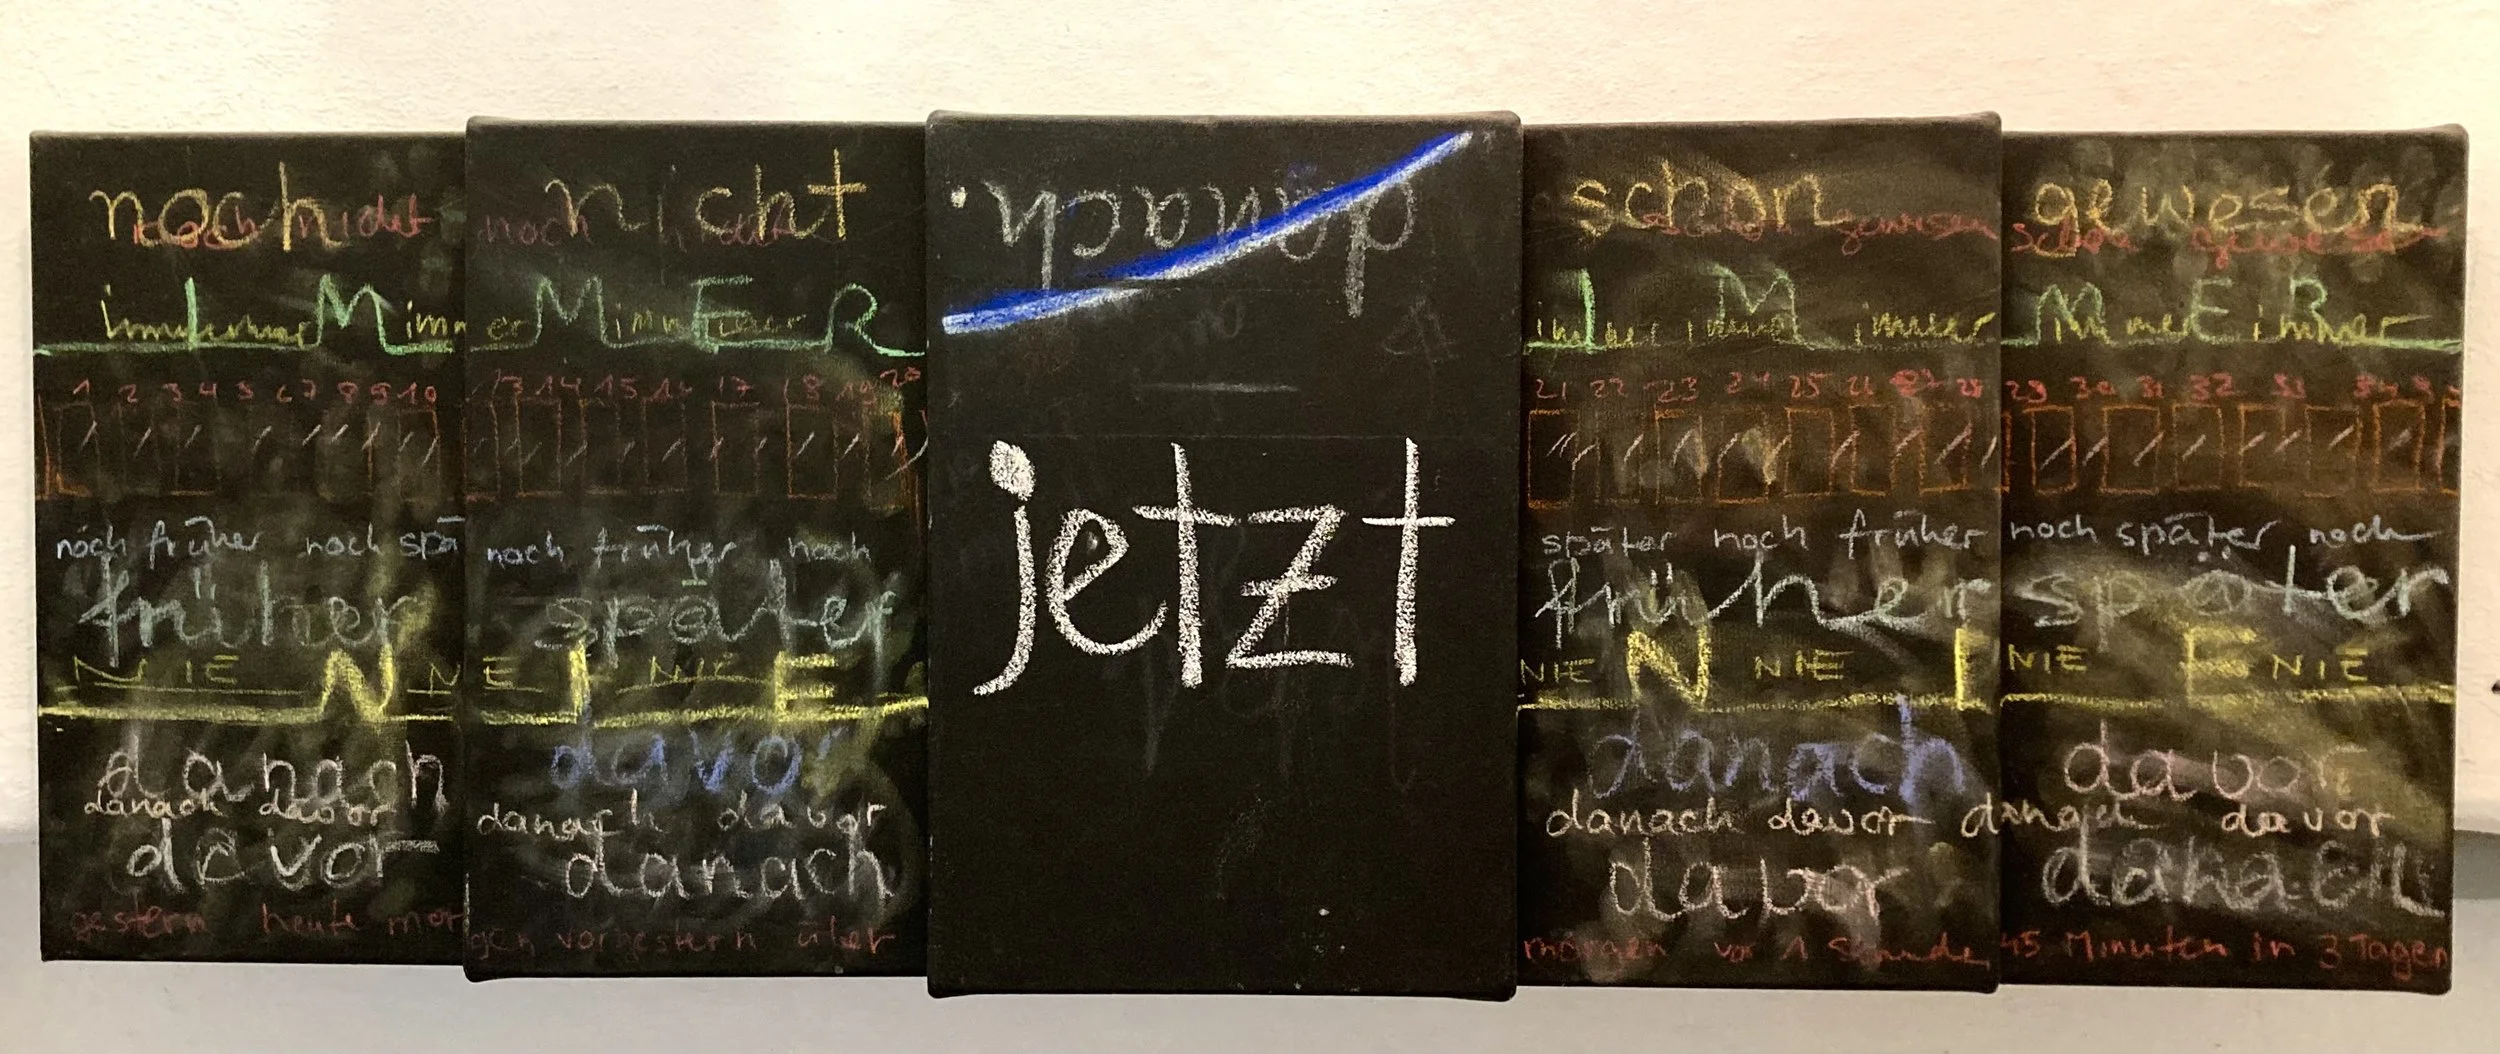 noch nicht
noch nicht
immer immer immer
I M
1 2 3 4 5 6 7 8 9 10
noch früher noch spä
früher
NIE N N
danach
danach davor
davor
gestern heute mor
nicht
noch nicht
er imm immer
M E R
13 14 15 16 17 18 19 20
noch früher noch
später
E I NIE E
davor
danach davor
danach
gen vorgestern über
danach
jetzt
schon
schon gewesen
I M
immer immer immer
21 22 23 24 25 26 27 28
später noch früher
früher
NIE N NIE I
danach
danach davor
davor
morgen vor 1 Stunde
gewesen
schon gewesen
M E R
immer immer
29 30 31 32 33 34
noch später noch
später
NIE E NIE
davor
danach davor
danach
45 Minuten in 3 Tagen